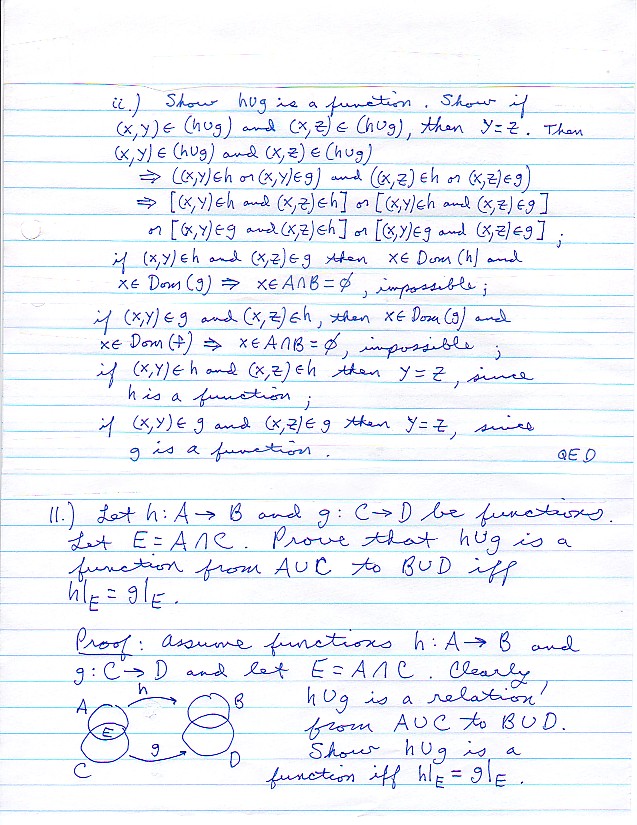 ii.) Show h∪g is a function. Show if
(x,y)∈ (h∪g) and (x,z)∈ (h∪g), then y=z. Then
(x,y)∈ (h∪g) and (x,z)∈ (h∪g)
⇒ ((x,y)∈h or (x,y)∈g) and ((x,z)∈h or (x,z)∈g)
⇒ [(x,y)∈h and (x,z)∈h] or [(x,y)∈h and (x,z)∈g]
or [(x,y)∈g and (x,z)∈h] or [(x,y)∈g and (x,z)∈g];
if (x,y)∈h and (x,z)∈g then x∈Dom(h) and
x∈Dom(g) ⇒ x∈A∩B=∅, impossible;
if (x,y)∈g and (x,z)∈h, then x∈Dom(g) and
x∈Dom(f) ⇒ x∈A∩B=∅, impossible;
if (x,y)∈h and (x,z)∈h then y=z, since
h is a function;
if (x,y)∈g and (x,z)∈g then y=z, since
g is a function. QED
11.) Let h: A→B and g: C→D be functions.
Let E=A∩C. Prove that h∪g is a
function from A∪C to B∪D iff
h|E = g|E.
Proof: Assume functions h: A→B and
g: C→D and let E=A∩C. Clearly,
h∪g is a relation
from A∪C to B∪D.
Show h∪g is a
function iff h|E = g|E.
h
A
B
E
g
C
D